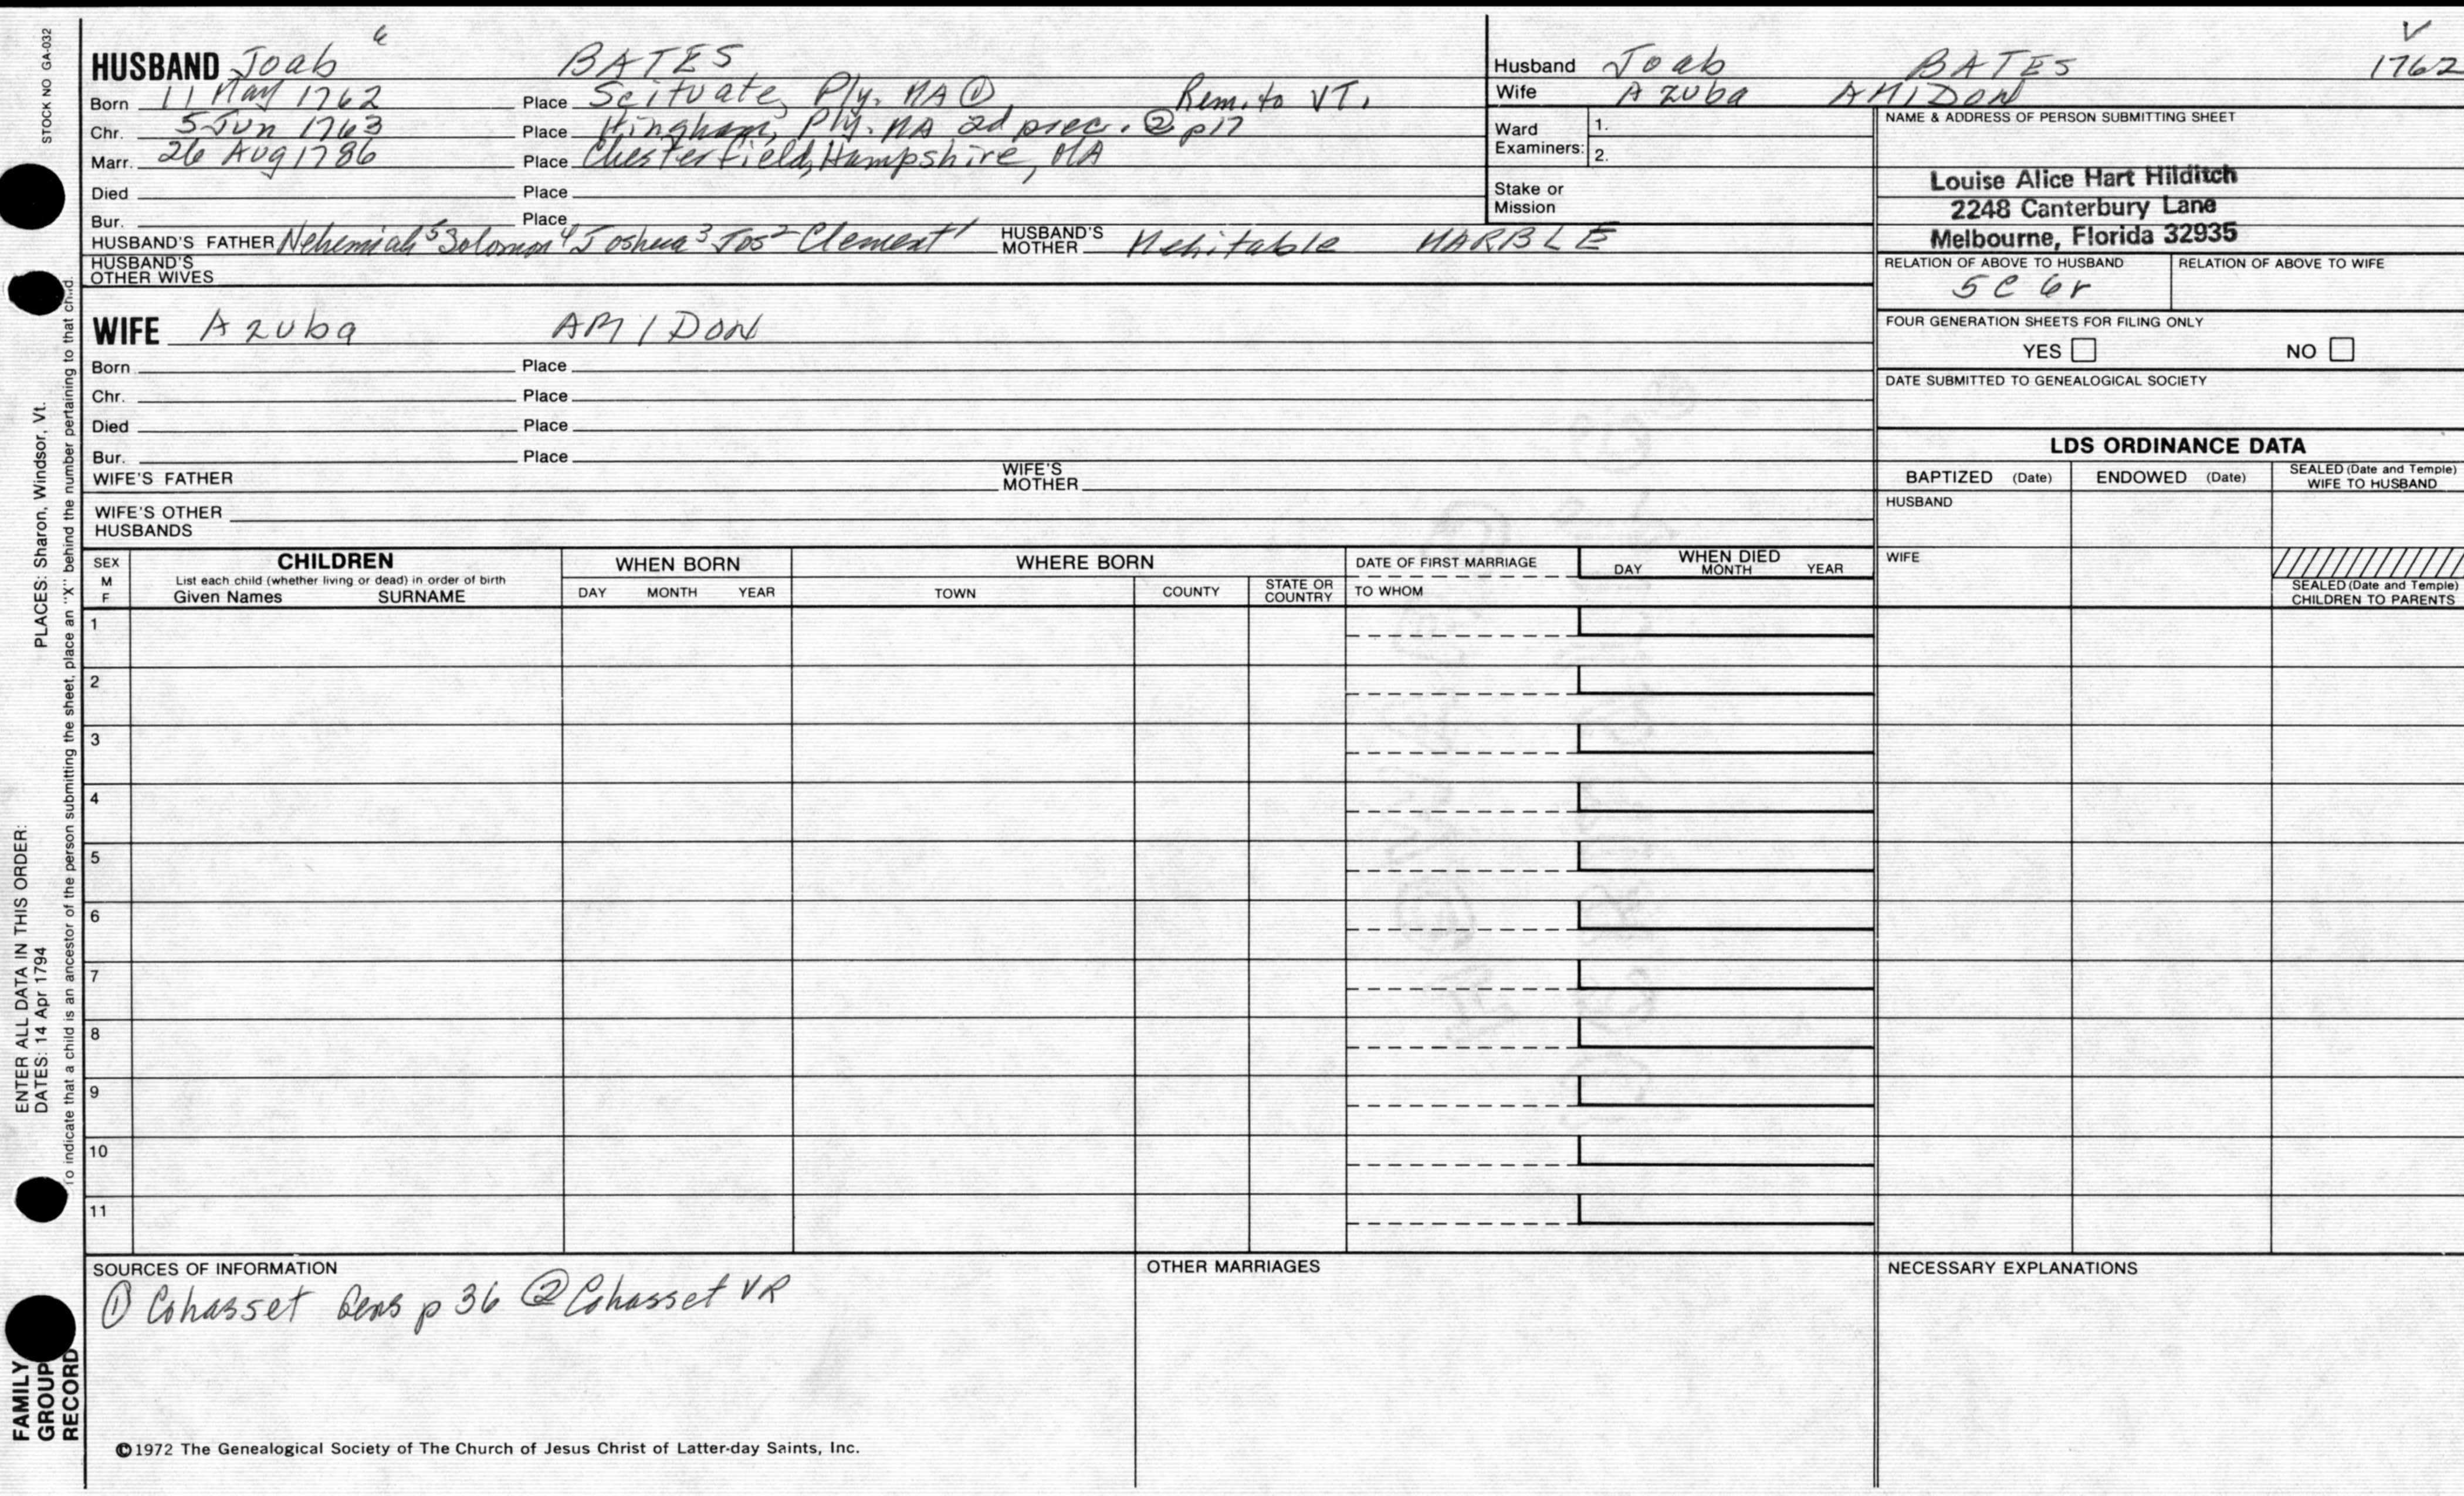 STOCK NO GA-032
HUSBAND Joab 6 BATES
Born 11 May 1762 Place Scituate, Ply. MA ① Rem. to VT.
Chr. 5 Jun 1763 Place Hingham, Ply. MA 2d prec. ② p17
Marr. 26 Aug 1786 Place Chesterfield, Hampshire, MA
Died Place
Bur. Place
HUSBAND'S FATHER Nehemiah 5 Solomon 4 Joshua 3 Jos 2 Clement 1 HUSBAND'S MOTHER Mehitable MARBLE
HUSBAND'S OTHER WIVES
WIFE Azuba AMIDON
Born Place
Chr. Place
Died Place
Bur. Place
WIFE'S FATHER WIFE'S MOTHER
WIFE'S OTHER HUSBANDS
Husband Joab BATES 1762
Wife Azuba AMIDON
Ward Examiners: 1.
2.
Stake or Mission
NAME & ADDRESS OF PERSON SUBMITTING SHEET
Louise Alice Hart Hilditch
2248 Canterbury Lane
Melbourne, Florida 32935
RELATION OF ABOVE TO HUSBAND RELATION OF ABOVE TO WIFE
5C 6r
FOUR GENERATION SHEETS FOR FILING ONLY
YES NO
DATE SUBMITTED TO GENEALOGICAL SOCIETY
LDS ORDINANCE DATA
BAPTIZED (Date) ENDOWED (Date) SEALED (Date and Temple) WIFE TO HUSBAND
HUSBAND
WIFE
SEALED (Date and Temple) CHILDREN TO PARENTS
SEX M F CHILDREN WHEN BORN WHERE BORN DATE OF FIRST MARRIAGE WHEN DIED
List each child (whether living or dead) in order of birth
Given Names SURNAME DAY MONTH YEAR TOWN COUNTY STATE OR COUNTRY TO WHOM DAY MONTH YEAR
1
2
3
4
5
6
7
8
9
10
11
SOURCES OF INFORMATION
① Cohasset Gens p 36 ② Cohasset VR
OTHER MARRIAGES
NECESSARY EXPLANATIONS
©1972 The Genealogical Society of The Church of Jesus Christ of Latter-day Saints, Inc.
ENTER ALL DATA IN THIS ORDER:
DATES: 14 Apr 1794 PLACES: Sharon, Windsor, Vt.
To indicate that a child is an ancestor of the person submitting the sheet, place an "X" behind the number pertaining to that child.
FAMILY
GROUP
RECORD